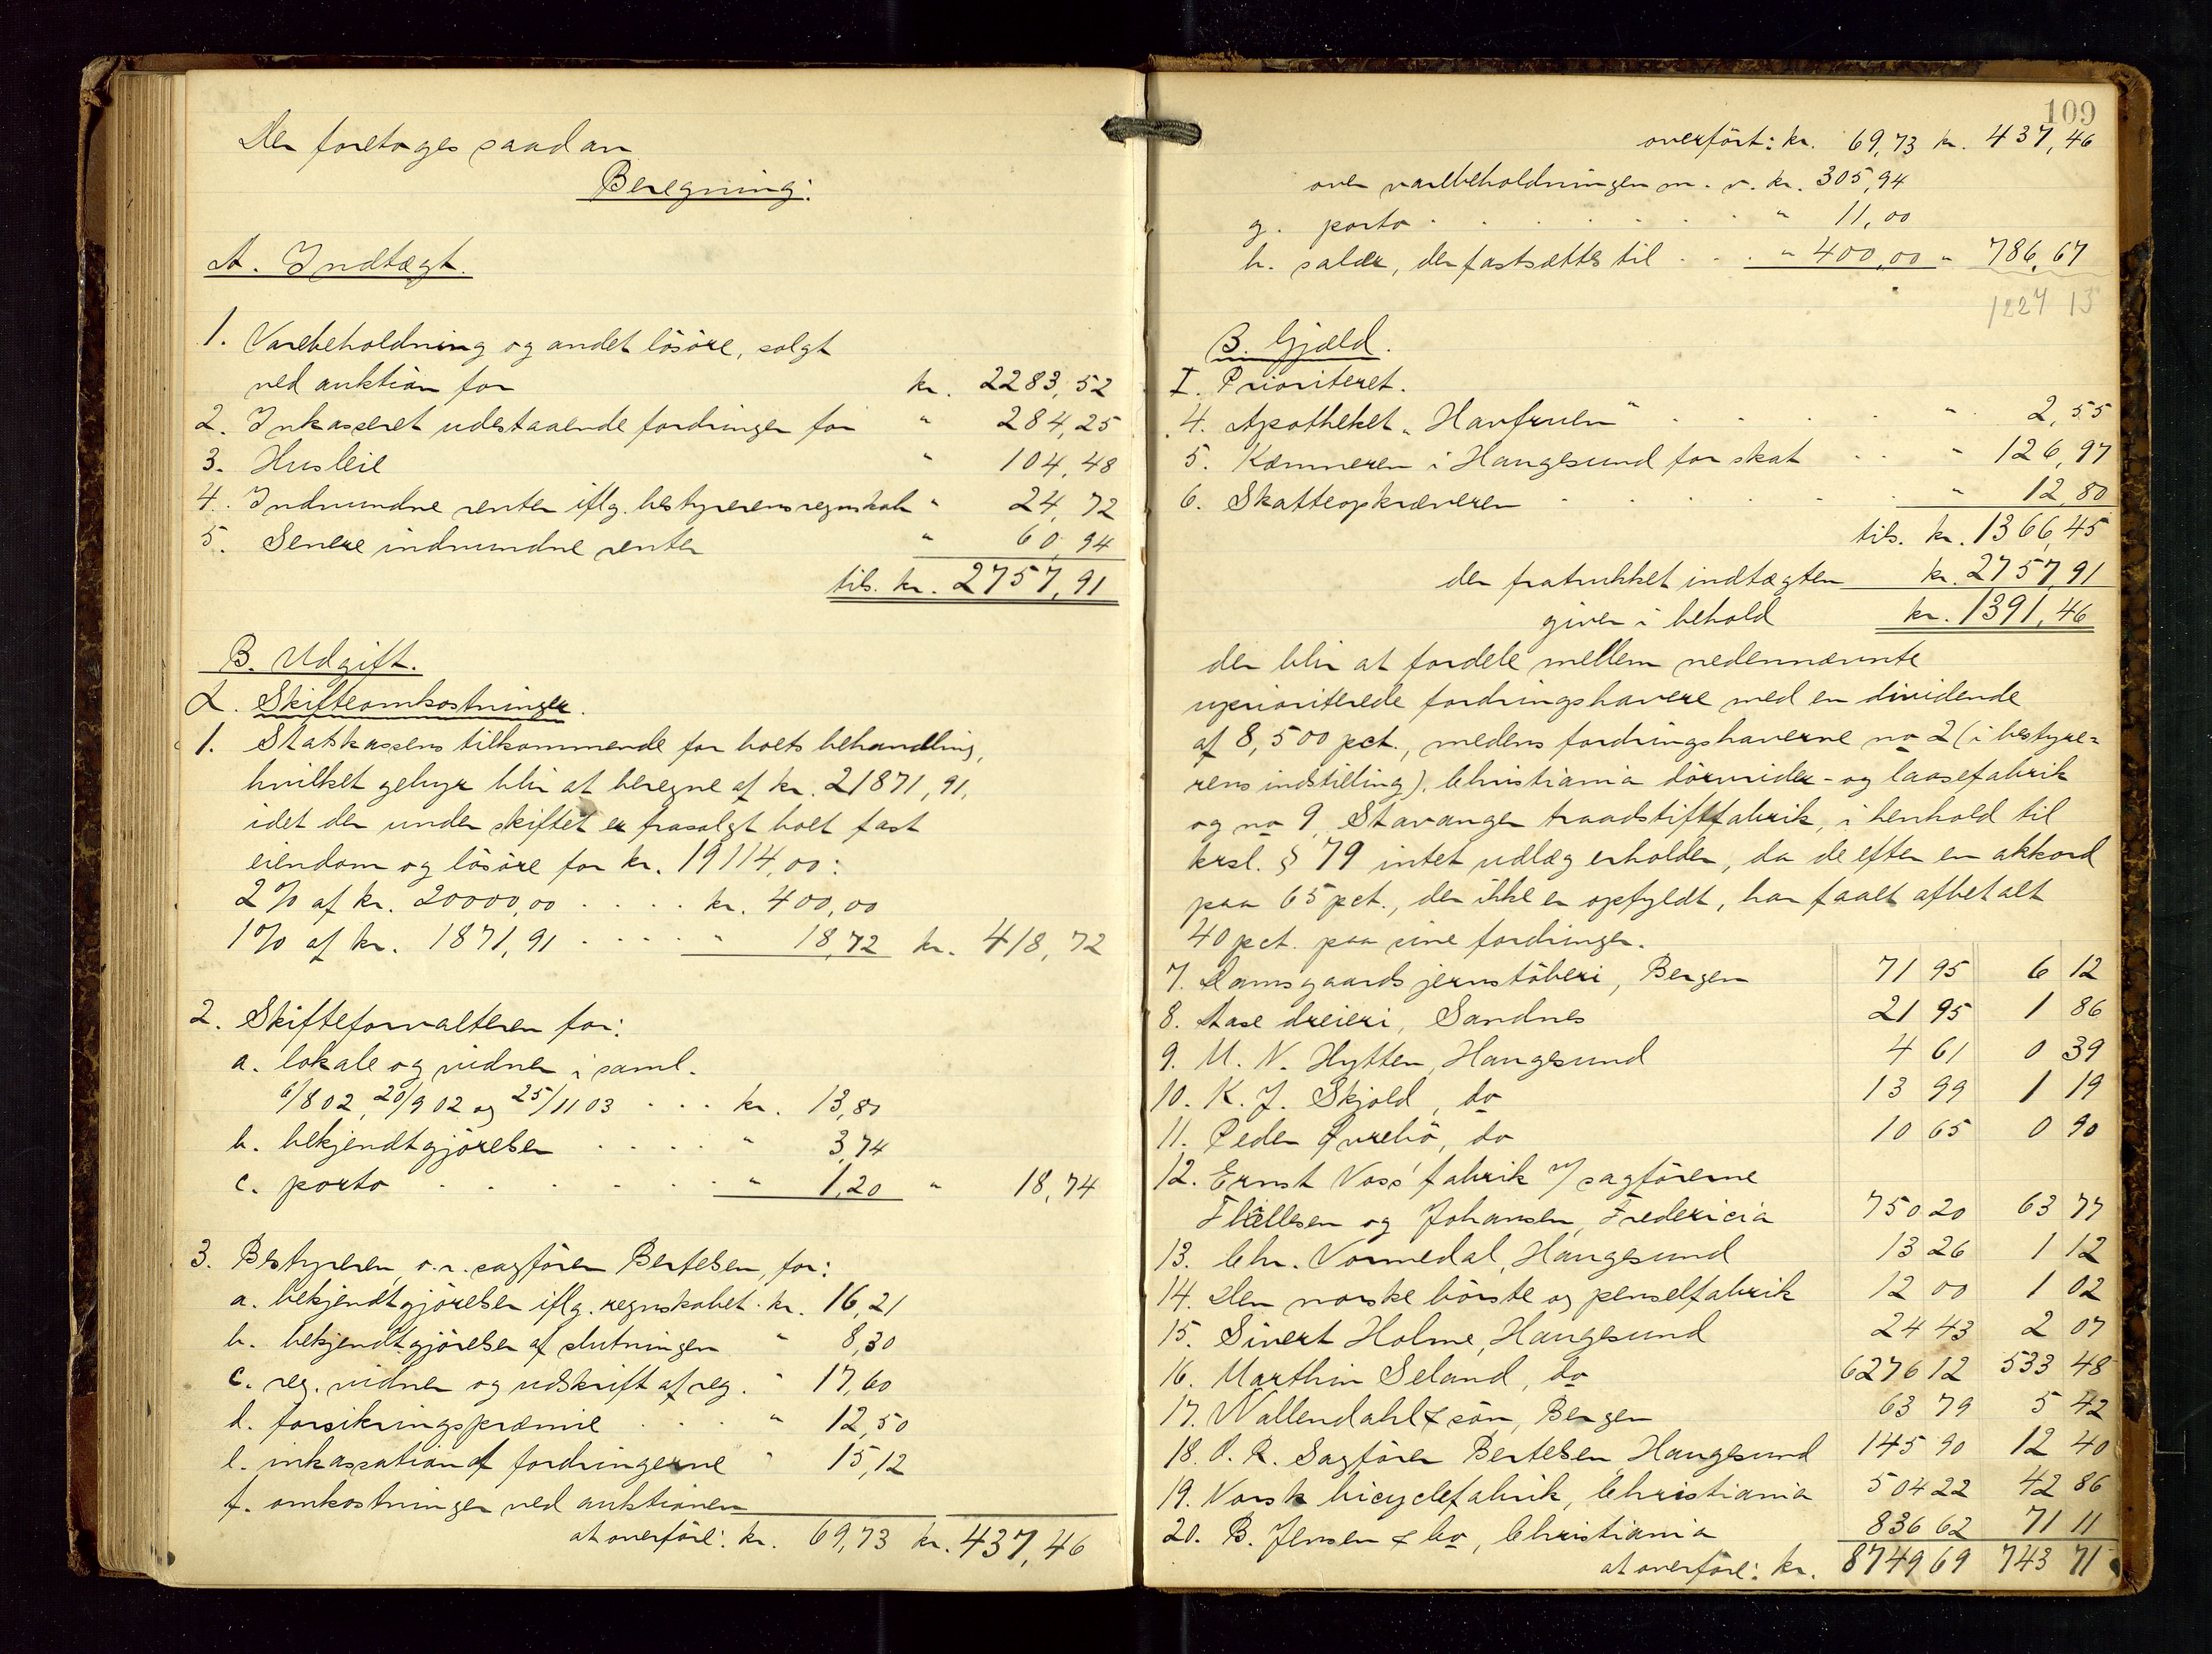 Der foretoges saadan
Beregning:
A. Indtægt.
1. Varebeholdning og andet lösöre, solgt
ved auktion for kr. 2283,52
2. Inkasseret udestaaende fordringer for " 284,25
3. Husleie " 104,48
4. Indvundne renter iflg. bestyrerens regnskab " 24,72
5. Senere indvundne renter " 60,94
tils. kr. 2757,91
B. Udgift.
α. Skifteomkostninger.
1. Statskassens tilkommende for boets behandling,
hvilket gebyr blir at beregne af kr. 21871,91,
idet der under skiftet er frasolgt boet fast
eiendom og lösöre for kr. 19114,00:
2% af kr. 20000,00 .... kr. 400,00
1% af kr. 1871,91 .... " 18,72 kr. 418,72
2. Skifteforvalteren for:
a. lokale og vidner i saml.
6/8 02, 20/9 02 og 25/11 03 ... kr. 13,80
b. bekjendtgjörelser .... " 3,74
c. porto ...... " 1,20 " 18,74
3. Bestyreren, o.r.sagförer Bertelsen, for:
a. bekjendtgjörelser iflg. regnskabet. kr. 16,21
b. bekjendtgjörelser af slutningen " 8,30
c. reg. vidner og udskrift af reg. " 17,60
d. forsikringspræmie ... " 12,50
e. inkassation af fordringerne " 15,12
f. omkostninger ved auktionen
at overföre: kr. 69,73 kr. 437,46
109
overfört: kr. 69,73 kr. 437,46
over varebeholdningen m. v. kr. 305,94
g. porto ....... " 11,00
h. salær, der fastsættes til ... " 400,00 " 786,67
1224 13
B. Gjæld.
I. Prioriteret.
4. Apotheket "Havfruen" .... " 2,55
5. Kæmneren i Haugesund for skat .. " 126,97
6. Skatteopkræveren ...... " 12,80
tils. kr. 1366,45
der fratrukket indtægten kr. 2757,91
giver i behold kr. 1391,46
der blir at fordele mellem nedennævnte
uprioriterede fordringshavere med en dividende
af 8,500 pct., medens fordringshaverne no 2 (i bestyre=
rens indstilling), Christiania dörvrider- og laasefabrik
og no 9, Stavanger traadstiftfabrik, i henhold til
krsl. § 79 intet udlæg erholder, da de efter en akkord
paa 65 pct., der ikke er opfyldt, har faaet afbetalt
40 pct. paa sine fordringer.
7. Damsgaards jernstöberi, Bergen 71 95 6 12
8. Aase dreieri, Sandnes 21 95 1 86
9. M. N. Hytten, Haugesund 4 61 0 39
10. K. J. Skjold, do 13 99 1 19
11. Peder Övrebö, do 10 65 0 90
12. Ernst Voss' fabrik v/ sagförerne
og Johansen, Fredericia 750 20 63 77
13. Chr. Vormedal, Haugesund 13 26 1 12
14. Den norske börste og penselfabrik 12 00 1 02
15. Sivert Holme, Haugesund 24 43 2 07
16. Marthin Seland, do 6276 12 533 48
17. Wallendahl & sön, Bergen 63 79 5 42
18. O. R. Sagförer Bertelsen Haugesund 145 90 12 40
19. Norsk bicyclefabrik, Christiania 504 22 42 86
20. B. Jensen & Co, Christiania 836 62 71 11
at overföre: kr. 8749 69 743 71